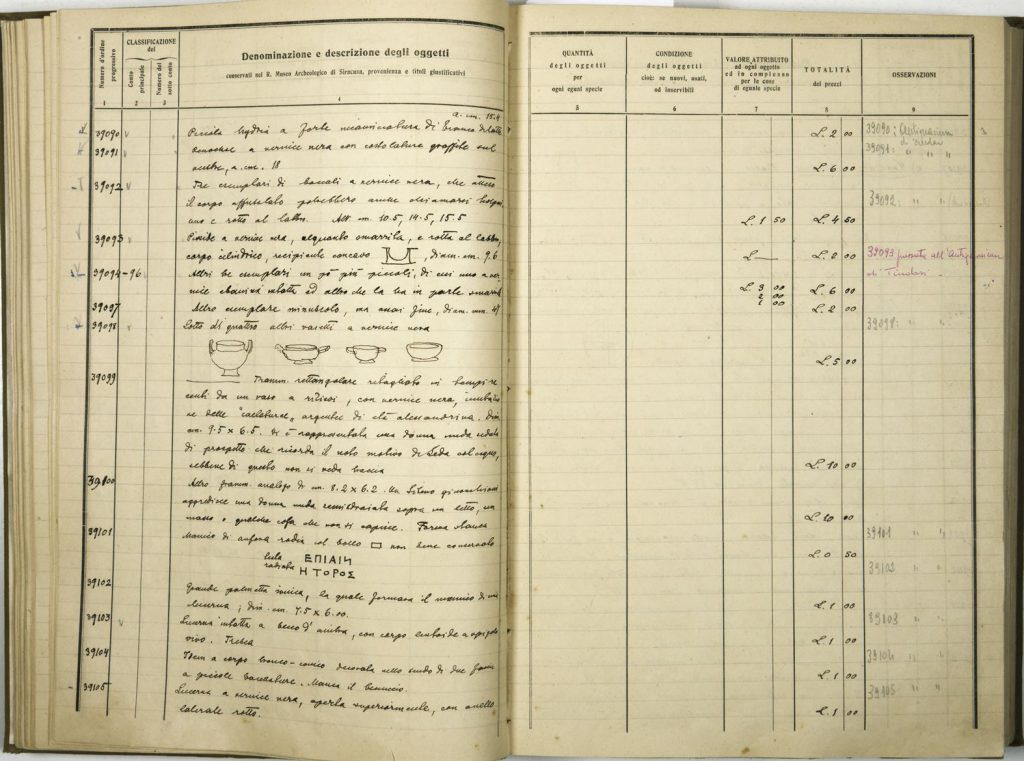 Numero d'ordine progressivo
CLASSIFICAZIONE del
Conto principale
Numero del sotto conto
Denominazione e descrizione degli oggetti
conservati nel R. Museo Archeologico di Siracusa, provenienza e titoli giustificativi
1 2 3 4
a. cm. 15.4
39090 Piccola hydria a forte
39091 a vernice nera con costolature graffite sul
ventre, a. cm. 18
39092 Tre esemplari di boccali a vernice nera, che atteso
il corpo affusolato potrebbero anche chiamarsi
uno è rotto al labbro. Alt. cm. 10.5, 14.5, 15.5
39093 Pisside a vernice nera, alquanto smarrita, e rotta al labbro,
corpo cilindrico, recipiente concavo , diam. cm. 9.6
39094-96 Altri tre esemplari un po' più piccoli, di cui uno a ver
nice intatta ed altro che la ha in parte smarrita
39097 Altro esemplare minuscolo, ma assai fine, diam. mm. 47
39098 Lotto di quattro altri vasetti a vernice nera
39099 Framm. rettangolare ritagliato in
da un vaso a rilievi, con vernice nera,
ne delle "caelaturae" argentee di età alessandrina. Dim.
cm. 9.5 x 6.5. Vi è rappresentata una donna nuda seduta
di prospetto che ricorda il noto motivo di Leda col cigno,
sebbene di questo non si veda traccia
39100 Altro framm. analogo di cm. 8.2 x 6.2. Un Sileno
aggredisce una donna nuda sopra un letto, un
masso o qualche cosa che non si capisce.
39101 Manico di anfora rodia col bollo non bene conservato
ΕΠΙΑΙΝ
ΗΤΟΡΟΣ
39102 Grande palmetta ionica, la quale formava il manico di una
lucerna; dim. cm. 7.5 x 6.00.
39103 Lucerna intatta a becco d'
vivo.
39104 Idem a corpo tronco-conico decorata nello
a piccole baccellature. Manca il beccuccio.
39105 Lucerna a vernice nera, aperta superiormente, con anello
laterale rotto.
QUANTITÀ degli oggetti per ogni eguel specie
CONDIZIONE degli oggetti cioè: se nuovi, usati, od inservibili
VALORE ATTRIBUITO ad ogni oggetto ed in complesso per le cose di eguale specie
TOTALITÀ dei prezzi
OSSERVAZIONI
5 6 7 8 9
L. 2 00 39090: Antiquarium
39091: " " "
L. 6 00
39092: "
L. 1 50 L. 4 50
L. L. 2 00 39093 passata all'Antiquarium
di Tindari
L. 3 00 L. 6 00
2 00
1 00 L. 2 00
39098: " "
L. 5 00
L. 10 00
L. 10 00
39101 " "
L. 0 50
39102 " "
L. 1 00
39103 " "
L. 1 00
39104 " "
L. 1 00
39105 " "
L. 1 00